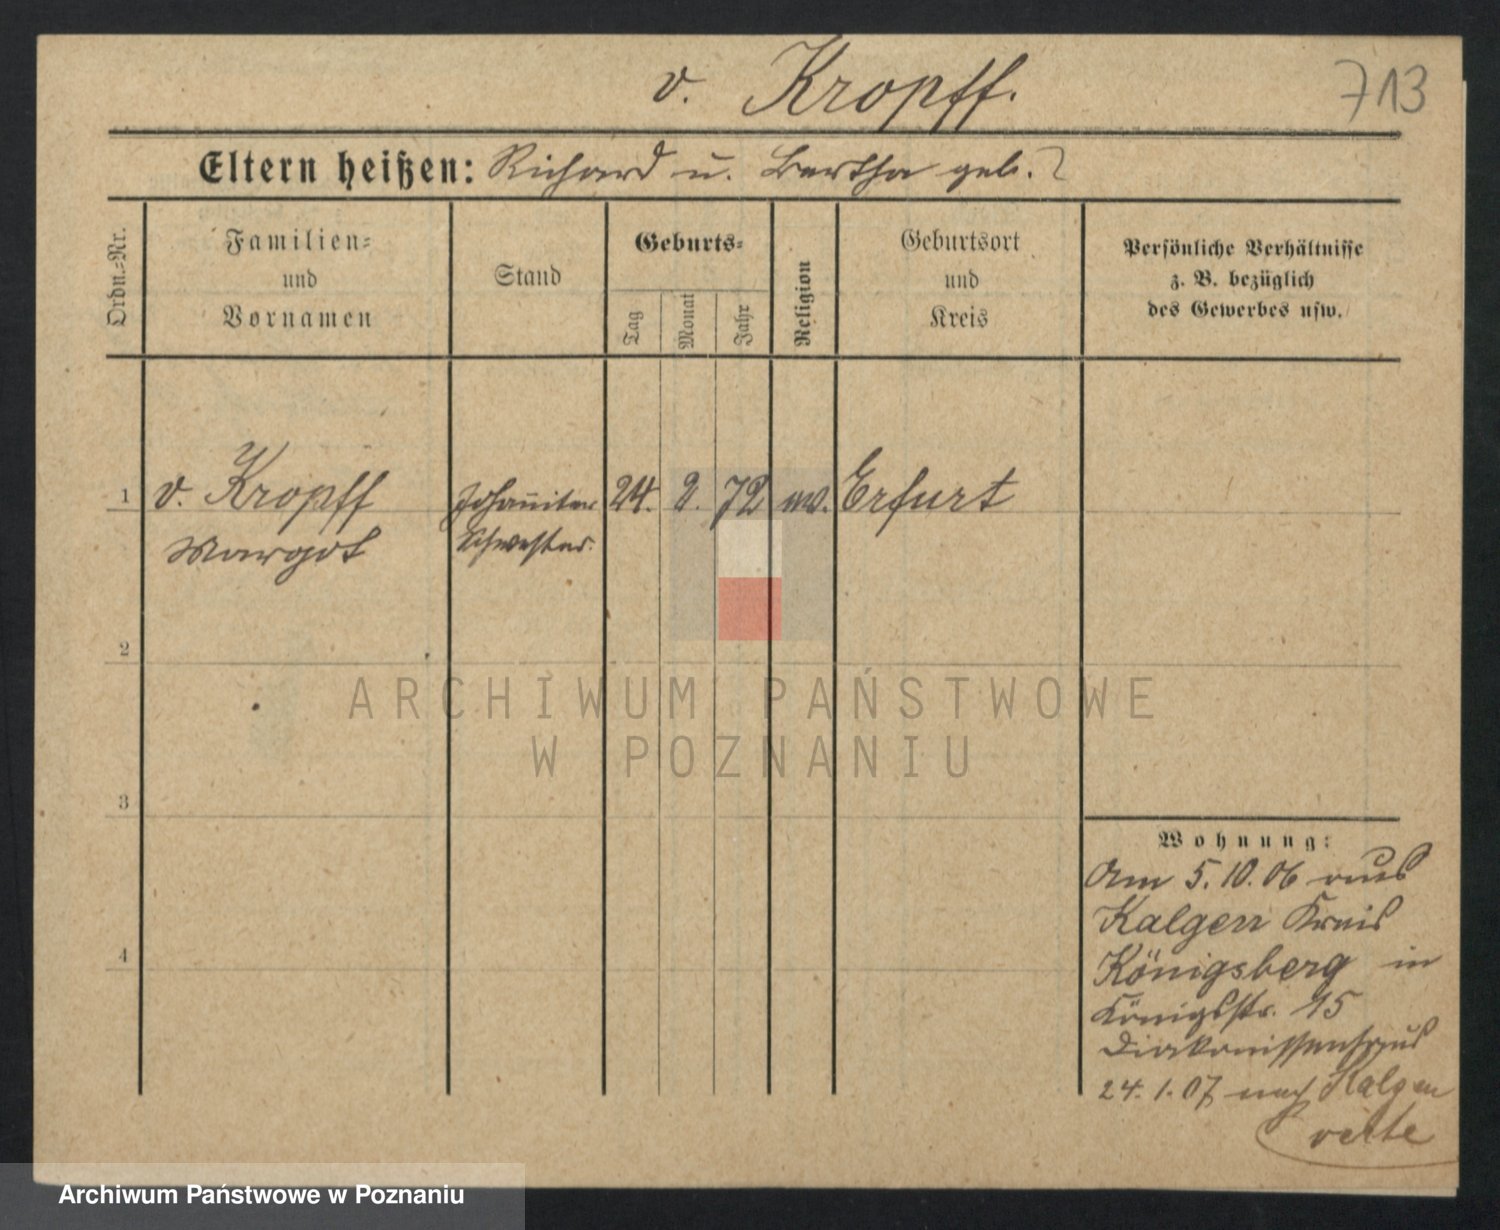 v. Kropff.
713
Eltern heißen: Richard u. Bertha geb. ?
Ordn.=Nr.
Familien=
und
Vornamen
Stand
Geburts=
Tag
Monat
Jahr
Religion
Geburtsort
und
Kreis
Persönliche Verhältnisse
z. B. bezüglich
des Gewerbes usw.
1 v. Kropff Johanniter 24. 2. 72 ev. Erfurt
Margot Schwester.
2
3
4
ARCHIWUM PAŃSTWOWE
W POZNANIU
Wohnung:
Am 5.10.06 aus
Kalgen Kreis
Königsberg in
Königsstr. 15
Diakonissenhaus
24.1.07 nach Kalgen
verte
Archiwum Państwowe w Poznaniu